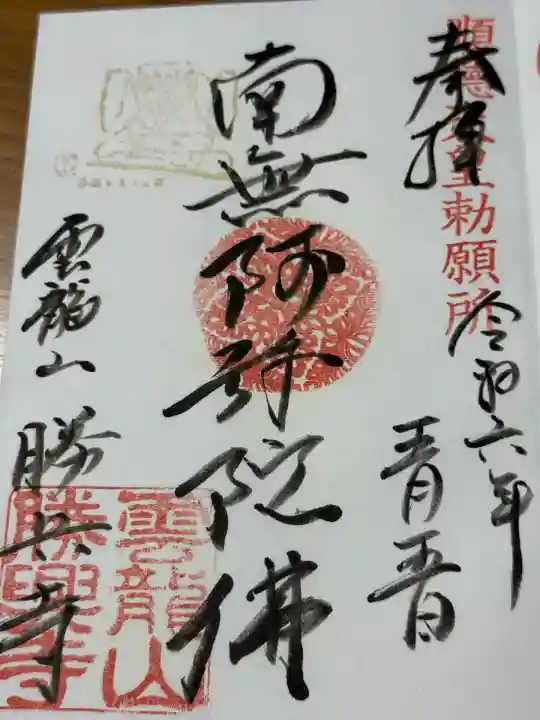 順德天皇勅願所
奉拝
令和六年
南無阿弥陀佛
雲龍山 勝興寺
雲龍山
勝興寺